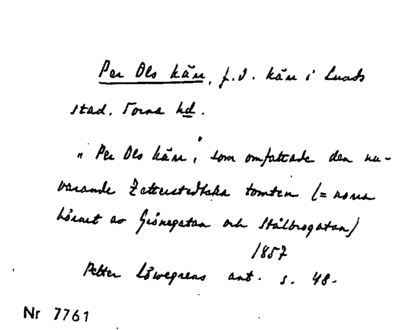 Per Ols kärr, f.d. kärr i Lunds
stad. Torna hd.
"Per Ols kärr", som omfattade den nu-
varande Zetterstedtska tomten (= norra
hörnet av Grönegatan och Stålbrogatan)
1857
Petter Löwegrens ant. s. 48.
Nr 7761